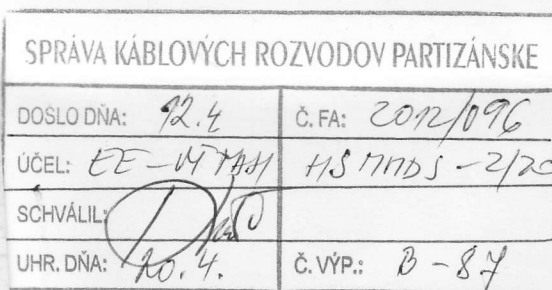 SPRÁVA KÁBLOVÝCH ROZVODOV PARTIZÁNSKE
DOŠLO DŇA: 12.4 Č. FA: 2012/096
ÚČEL: EE-
SCHVÁLIL:
UHR. DŇA: 20.4. Č. VÝP.: B-87